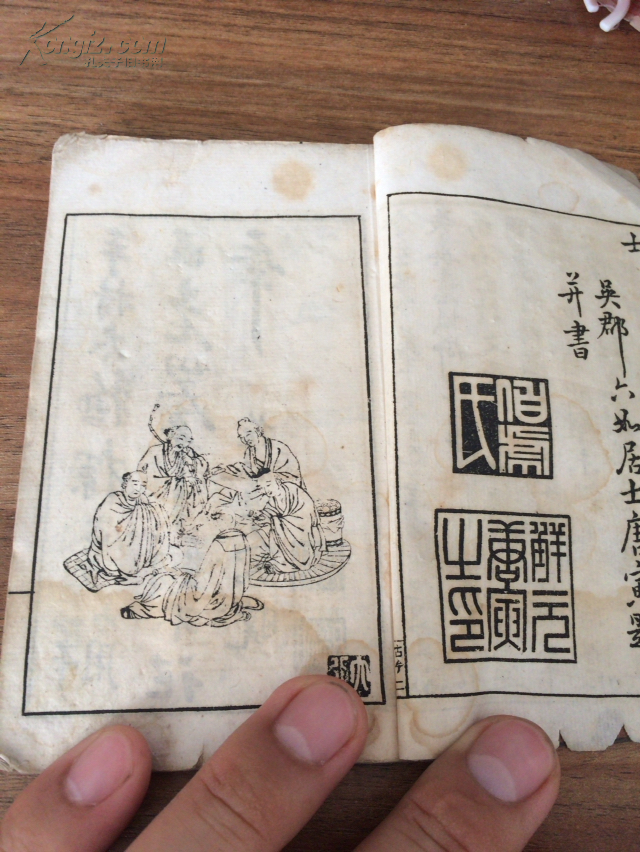 Kongfz.com
孔夫子旧书网
士
吳郡六如居士唐寅墨
并書
伯虎氏
解元唐寅之印